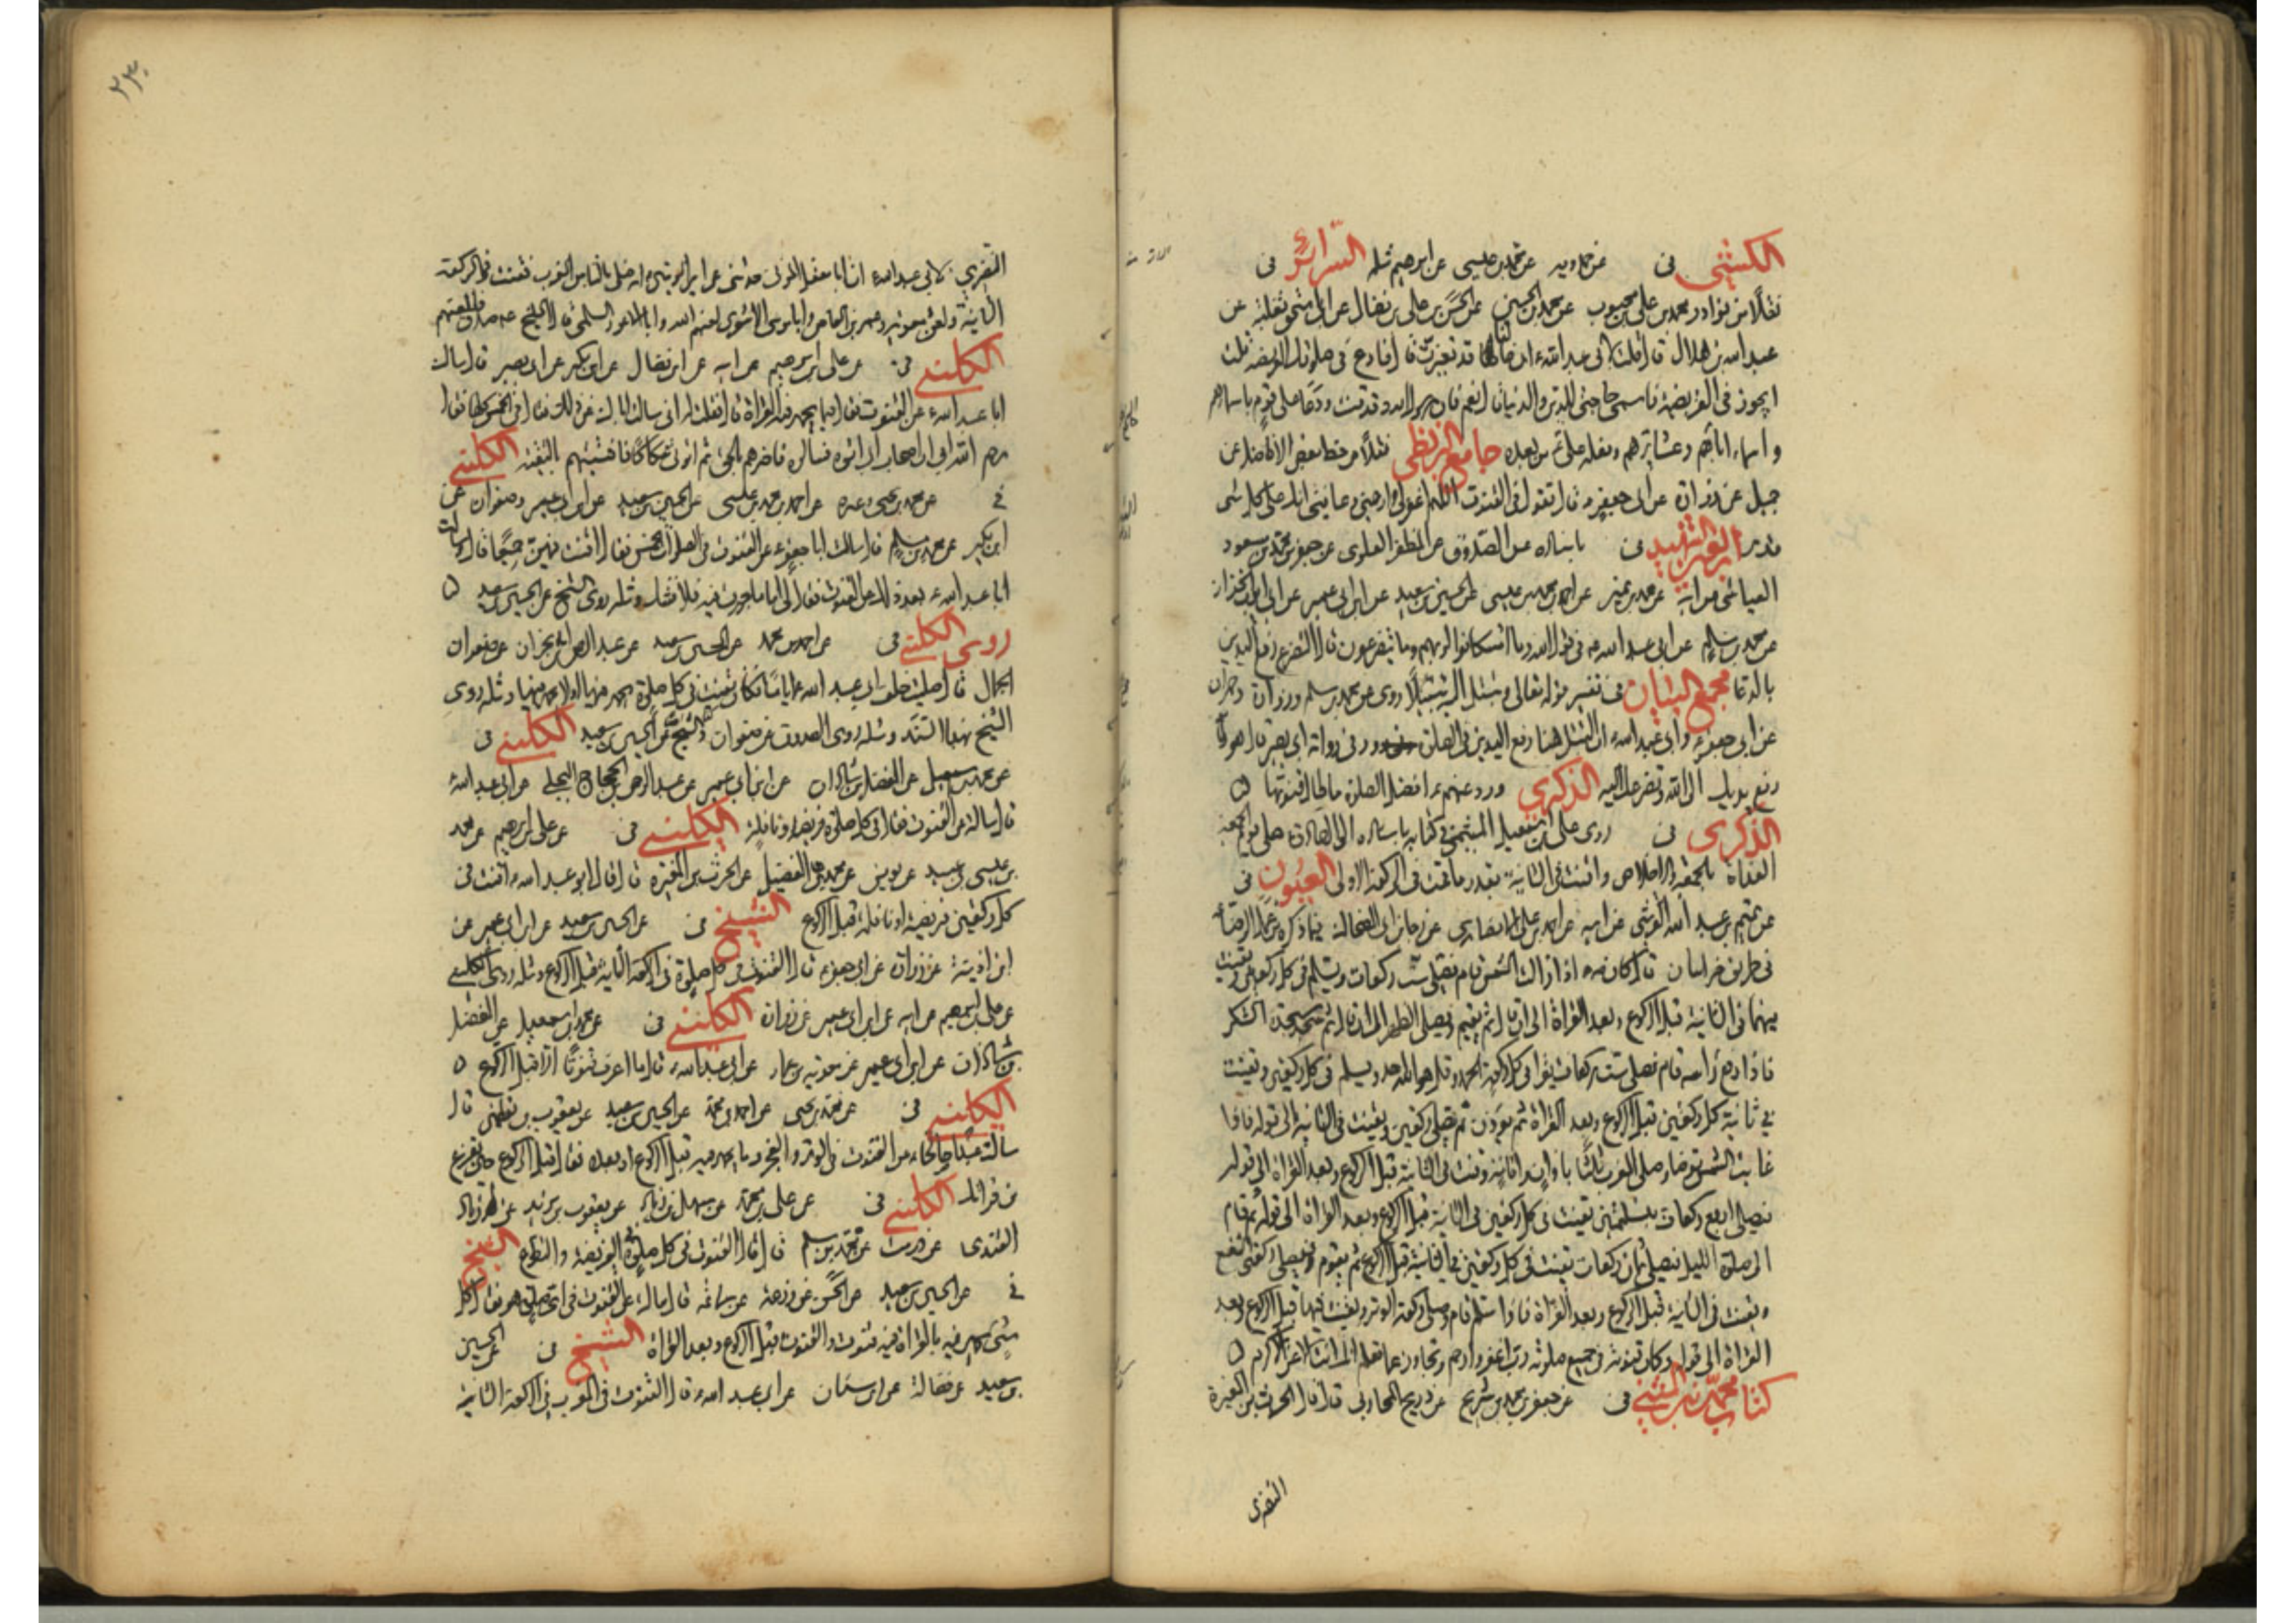 الكشي في عن حمدويه عن محمد بن عيسى عن ابرهيم مثله السرائر في
نقلا من نوادر محمد بن علي بن محبوب عن محمد بن الحسين عن الحسن بن علي بن فضال عن ثعلبة عن
عبد الله بن هلال قال قلت لابي عبد الله ء ان حالنا قد تغيرت قال فادع في صلوتك الفريضة قلت
ايجوز في الفريضة فاسمي حاجتي للدين والدنيا قال نعم فان رسول الله قد قنت ودعا على قوم باسمائهم
واسماء ابائهم وعشائرهم وفعله علي من بعده جامع البزنطي نقلا من خط بعض الافاضل عن
جميل عن زرارة عن ابي جعفر قال تقول في القنوت اللهم اغفر لي وارحمني وعافني انك على كل شئ
قدير في باسناده عن الصدوق عن المظفر العلوي عن جعفر بن محمد بن مسعود
العياشي عن ابيه عن احمد بن محمد بن عيسى عن الحسين بن سعيد عن ابن ابي عمير عن ابي ايوب الخزاز
عن محمد بن مسلم عن ابي عبد الله في قول الله فما استكانوا لربهم وما يتضرعون قال التضرع رفع اليدين
بالدعا مجمع البيان في تفسير قوله تعالى وتبتل اليه تبتيلا روى عن محمد بن مسلم وزرارة وحمران
عن ابي جعفر وابي عبد الله ان التبتل هنا رفع اليدين في الصلوة وفي رواية ابي بصير قال هو
رفع يديك الى الله وتضرعك اليه الذكرى وورد عنهم ء افضل الصلوة ما طال قنوتها
الذكرى في روى علي بن اسمعيل الميثمي في كتابه باسناده الى الصادق صلى يوم الجمعة
الغداة بالجمعة والاخلاص وقنت في الثانية بقدر ما قنت في الركعة الاولى العيون في
عن تميم بن عبد الله القرشي عن ابيه عن احمد بن علي الانصاري عن رجاء بن ابي الضحاك فيما ذكره عن الرضا
في طريق خراسان قال كان اذا زالت الشمس قام فصلى ست ركعات ويسلم في كل ركعتين ويقنت
فيهما في الثانية قبل الركوع وبعد القراة الى ان قال ثم يقيم ويصلي الظهر الى ان قال ثم سجد سجدة الشكر
فاذا رفع راسه قام فصلى ست ركعات يقرا في كل ركعة الحمد وقل هو الله احد ويسلم في كل ركعتين ويقنت
في ثانية كل ركعتين قبل الركوع وبعد القراة ثم يؤذن ثم يصلي ركعتين ويقنت في الثانية الى قوله فاذا
غابت الشمس توضا وصلى المغرب ثلثا باذان واقامة وقنت في الثانية قبل الركوع وبعد القراة الى قوله
فيصلي اربع ركعات بتسليمتين يقنت في كل ركعتين في الثانية قبل الركوع وبعد القراة الى قوله ثم قام
الى صلوة الليل فيصلي ثمان ركعات يقنت في كل ركعتين في الثانية قبل الركوع ثم يقوم فيصلي ركعتي الشفع
ويقنت في الثانية قبل الركوع وبعد القراة فاذا سلم قام وصلى ركعة الوتر ويقنت فيها قبل الركوع وبعد
القراة الى قوله وكان قنوته في جميع صلوته رب اغفر وارحم وتجاوز عما تعلم انك انت الاعز الاكرم
كتاب محمد بن المثنى في عن جعفر بن محمد بن شريح عن ذريح المحاربي قال قال الحرث بن المغيرة
النضري
٢٣٠
النضري لابي عبد الله ء ان ابا معقل المزني حدثني عن امير المؤمنين انه صلى بالناس المغرب فقنت في الركعة
الثانية ولعن معوية وعمرو بن العاص وابا موسى الاشعري لعنهم الله وابا الاعور السلمي قال الشيخ ء صدق فالعنهم
الكليني في عن علي بن ابرهيم عن ابيه عن ابن فضال عن ابن بكير عن ابي بصير قال سالت
ابا عبد الله ء عن القنوت فقال فيما يجهر فيه القراة قال فقلت له اني سالت اباك عن ذلك فقال في الخمس كلها فقال
رحم الله ابي ان اصحاب ابي اتوه فسالوه فاخبرهم بالحق ثم اتوني شكاكا فافتيتهم بالتقية الكليني
في عن محمد بن يحيى وغيره عن احمد بن محمد بن عيسى عن الحسين بن سعيد عن ابن ابي عمير وصفوان عن
ابن بكير عن محمد بن مسلم قال سالت ابا جعفر ء عن القنوت في الصلوات الخمس فقال اقنت فيهن جميعا قال وسالت
ابا عبد الله ء بعد ذلك عن القنوت فقال لي اما ما جهرت فيه فلا تشك ومثله روى الشيخ عن الحسين بن سعيد
روى الكليني في عن احمد بن محمد عن الحسين بن سعيد عن عبد الرحمن بن ابي نجران عن صفوان
الجمال قال صليت خلف ابي عبد الله ء اياما فكان يقنت في كل صلوة يجهر فيها او لا يجهر فيها ومثله روى
الشيخ بهذا السند ومثله روى الصدوق عن صفوان الكليني في
عن محمد بن اسمعيل عن الفضل بن شاذان عن ابن ابي عمير عن عبد الرحمن بن الحجاج البجلي عن ابي عبد الله ء
قال سالته عن القنوت فقال في كل صلوة فريضة ونافلة الكليني في عن علي بن ابرهيم عن محمد
بن عيسى بن عبيد عن يونس عن محمد بن الفضيل عن الحرث بن المغيرة قال قال ابو عبد الله ء اقنت في
كل ركعتين فريضة او نافلة قبل الركوع الشيخ في عن الحسين بن سعيد عن ابن ابي عمير عن
ابن اذينة عن زرارة عن ابي جعفر ء قال القنوت في كل صلوة في الركعة الثانية قبل الركوع ومثله روى الكليني
عن علي بن ابرهيم عن ابيه عن ابن ابي عمير عن زرارة الكليني في عن محمد بن اسمعيل عن الفضل
بن شاذان عن ابن ابي عمير عن معوية بن عمار عن ابي عبد الله ء قال ما اعرف قنوتا الا قبل الركوع
الكليني في عن محمد بن يحيى عن احمد بن محمد عن الحسين بن سعيد عن يعقوب بن يقطين قال
سالت عبدا صالحا ء عن القنوت في الوتر والفجر وما يجهر فيه قبل الركوع او بعده فقال قبل الركوع حين تفرغ
من قراتك الكليني في عن علي بن محمد عن سهل بن زياد عن يعقوب بن يزيد عن زياد
القندي عن درست عن محمد بن مسلم قال قال القنوت في كل صلوة في الفريضة والتطوع الشيخ
في عن الحسين بن سعيد عن الحسن عن زرعة عن سماعة قال سالته عن القنوت في اي صلوة هو فقال كل
شئ يجهر فيه بالقراة فيه قنوت والقنوت قبل الركوع وبعد القراة الشيخ في عن الحسين
بن سعيد عن فضالة عن ابن سنان عن ابي عبد الله ء قال القنوت في المغرب في الركعة الثانية